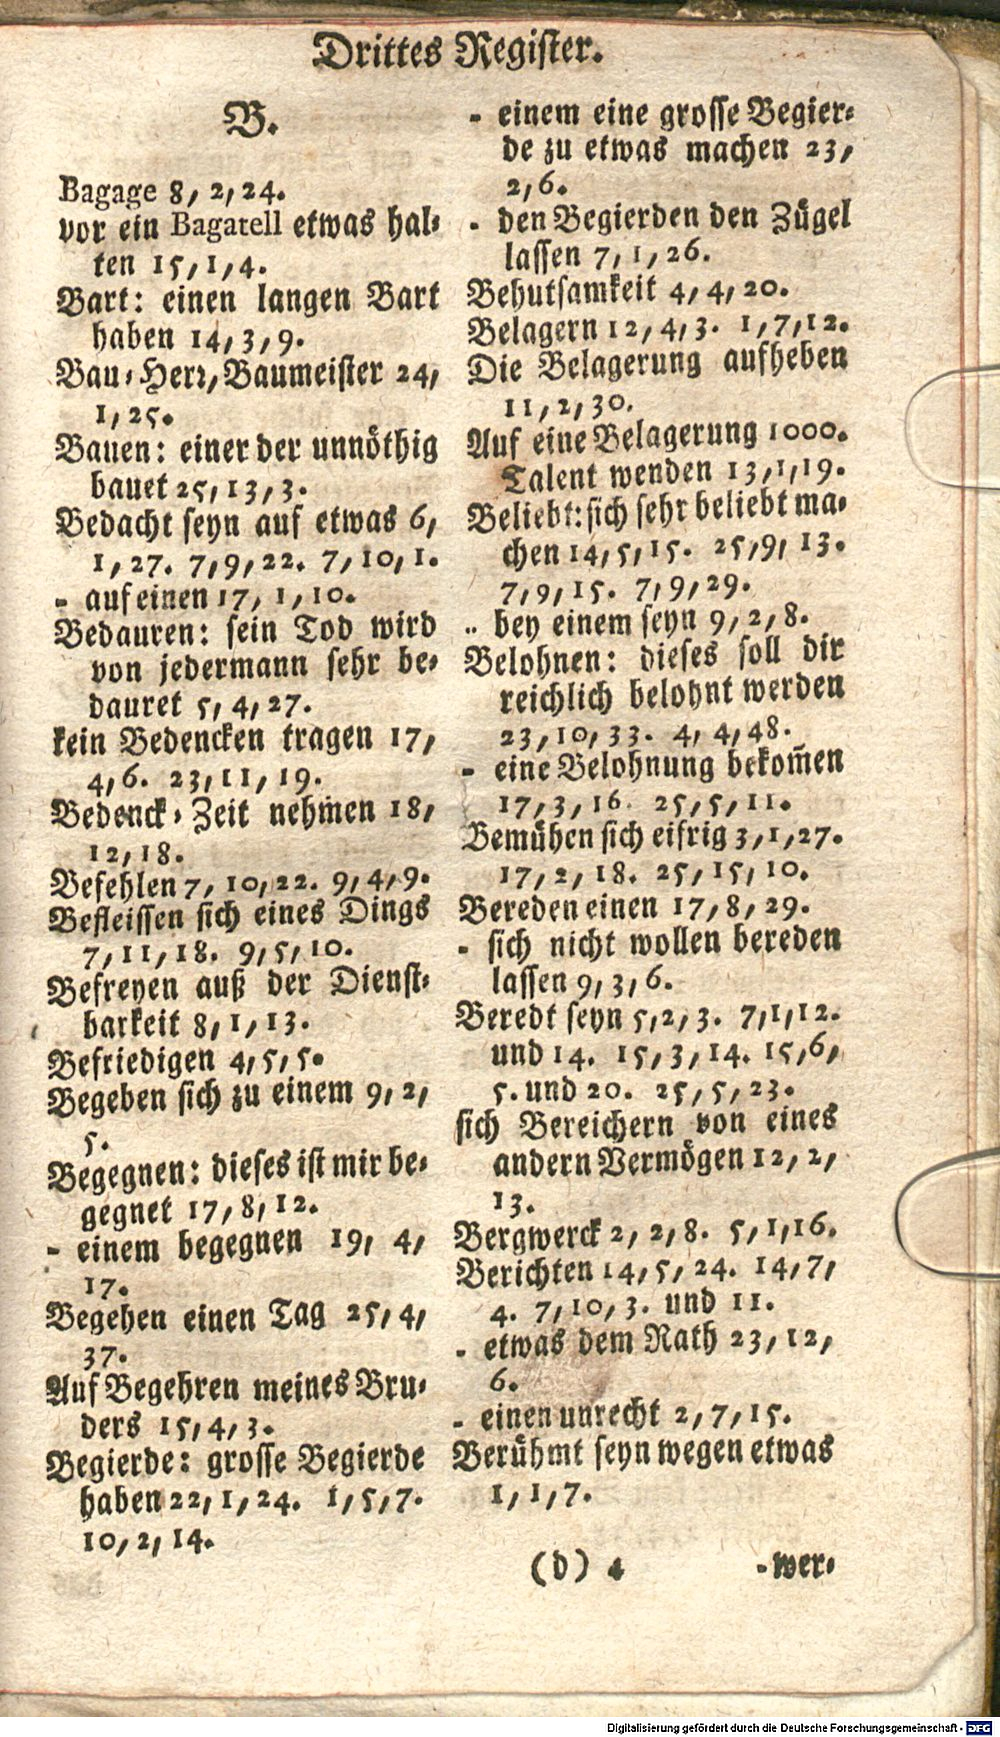 Drittes Register.
B.
Bagage 8, 2, 24.
vor ein Bagatell etwas hal-
ten 15, 1, 4.
Bart: einen langen Bart
haben 14, 3, 9.
Bau-Herr, Baumeister 24,
1, 25.
Bauen: einer der unnöthig
bauet 25, 13, 3.
Bedacht seyn auf etwas 6,
1, 27. 7, 9, 22. 7, 10, 1.
- auf einen 17, 1, 10.
Bedauren: sein Tod wird
von jedermann sehr be-
dauret 5, 4, 27.
kein Bedencken tragen 17,
4, 6. 23, 11, 19.
Bedenck-Zeit nehmen 18,
12, 18.
Befehlen 7, 10, 22. 9, 4, 9.
Befleissen sich eines Dings
7, 11, 18. 9, 5, 10.
Befreyen auß der Dienst-
barkeit 8, 1, 13.
Befriedigen 4, 5, 5.
Begeben sich zu einem 9, 2,
5.
Begegnen: dieses ist mir be-
gegnet 17, 8, 12.
- einem begegnen 19, 4,
17.
Begehen einen Tag 25, 4,
37.
Auf Begehren meines Bru-
ders 15, 4, 3.
Begierde: grosse Begierde
haben 22, 1, 24. 1, 5, 7.
10, 2, 14.
- einem eine grosse Begier-
de zu etwas machen 23,
2, 6.
- den Begierden den Zügel
lassen 7, 1, 26.
Behutsamkeit 4, 4, 20.
Belagern 12, 4, 3. 1, 7, 12.
Die Belagerung aufheben
11, 2, 30.
Auf eine Belagerung 1000.
Talent wenden 13, 1, 19.
Beliebt: sich sehr beliebt ma-
chen 14, 5, 15. 25, 9, 13.
7, 9, 15. 7, 9, 29.
- bey einem seyn 9, 2, 8.
Belohnen: dieses soll dir
reichlich belohnt werden
23, 10, 33. 4, 4, 48.
- eine Belohnung bekom̄en
17, 3, 16. 25, 5, 11.
Bemühen sich eifrig 3, 1, 27.
17, 2, 18. 25, 15, 10.
Bereden einen 17, 8, 29.
- sich nicht wollen bereden
lassen 9, 3, 6.
Beredt seyn 5, 2, 3. 7, 1, 12.
und 14. 15, 3, 14. 15, 6,
5. und 20. 25, 5, 23.
sich Bereichern von eines
andern Vermögen 12, 2,
13.
Bergwerck 2, 2, 8. 5, 1, 16.
Berichten 14, 5, 24. 14, 7,
4. 7, 10, 3. und 11.
- etwas dem Rath 23, 12,
6.
- einen unrecht 2, 7, 15.
Berühmt seyn wegen etwas
1, 1, 7.
(d) 4
-wer-
Digitalisierung gefördert durch die Deutsche Forschungsgemeinschaft - DFG